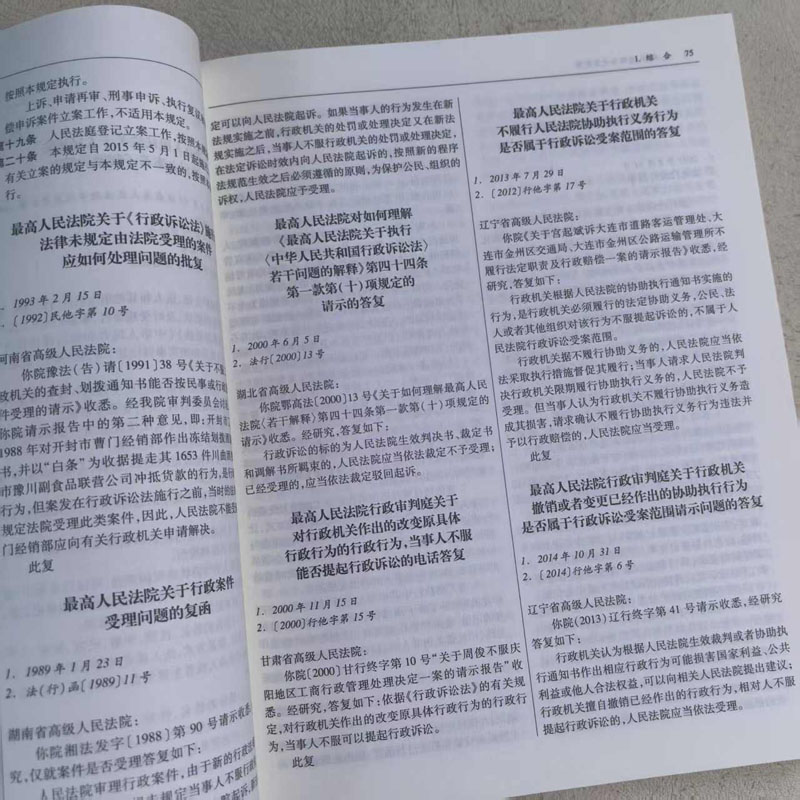 按照本规定执行。
上诉、申请再审、刑事申诉、执行复议
偿申诉案件立案工作,不适用本规定。
第十九条 人民法庭登记立案工作,按照本
第二十条 本规定自 2015 年 5 月 1 日起
有关立案的规定与本规定不一致的,按照
行。
最高人民法院关于《行政诉讼法》
法律未规定由法院受理的案件
应如何处理问题的批复
1. 1993 年 2 月 15 日
2. 〔1992〕民他字第 10 号
河南省高级人民法院:
你院豫法(告)请〔1991〕38 号《关于
政机关的查封、划拨通知书能否按民事或行政
件受理的请示》收悉。经我院审判委员会讨
你院请示报告中的第二种意见,即:开封市
1988 年对开封市曹门经销部作出冻结划拨
书,并以“白条”为收据提走其 1653 件川曲
市豫川副食品联营公司冲抵货款的行为,是
行为,但案发在行政诉讼法施行之前,当时的
规定法院受理此类案件,因此,人民法院不
门经销部应向有关行政机关申请解决。
此复
最高人民法院关于行政案件
受理问题的复函
1. 1989 年 1 月 23 日
2. 法(行)函〔1989〕11 号
湖南省高级人民法院:
你院湘法发字〔1988〕第 90 号请示收
究,仅就案件是否受理答复如下:
人民法院审理行政案件,由于新的行政
1. 综 合 75
定可以向人民法院起诉。如果当事人的行为发生在新
法规实施之前,行政机关的处罚或处理决定又在新法
规实施之后,当事人不服行政机关的处罚或处理决定,
在法定诉讼时效内向人民法院起诉的,按照新的程序
法规范生效之后必须遵循的原则,为保护公民、组织的
诉权,人民法院应予受理。
最高人民法院对如何理解
《最高人民法院关于执行
〈中华人民共和国行政诉讼法〉
若干问题的解释》第四十四条
第一款第(十)项规定的
请示的答复
1. 2000 年 6 月 5 日
2. 法行〔2000〕13 号
湖北省高级人民法院:
你院鄂高法〔2000〕13 号《关于如何理解最高人民
法院〈若干解释〉第四十四条第一款第(十)项规定的
请示》收悉。经研究,答复如下:
行政诉讼的标的为人民法院生效判决书、裁定书
和调解书所羁束的,人民法院应当依法裁定不予受理;
已经受理的,应当依法裁定驳回起诉。
最高人民法院行政审判庭关于
对行政机关作出的改变原具体
行政行为的行政行为,当事人不服
能否提起行政诉讼的电话答复
1. 2000 年 11 月 15 日
2. 〔2000〕行他字第 15 号
甘肃省高级人民法院:
你院〔2000〕甘行终字第 10 号“关于周俊不服庆
阳地区工商行政管理处理决定一案的请示报告”收
悉。经研究,答复如下:依据《行政诉讼法》的有关规
定,对行政机关作出的改变原具体行政行为的行政行
为,当事人不服可以提起行政诉讼。
此复
最高人民法院关于行政机关
不履行人民法院协助执行义务行为
是否属于行政诉讼受案范围的答复
1. 2013 年 7 月 29 日
2. 〔2012〕行他字第 17 号
辽宁省高级人民法院:
你院《关于宫起斌诉大连市道路客运管理处、大
连市金州区交通局、大连市金州区公路运输管理所不
履行法定职责及行政赔偿一案的请示报告》收悉,经
研究,答复如下:
行政机关根据人民法院的协助执行通知书实施的
行为,是行政机关必须履行的法定协助义务,公民、法
人或者其他组织对该行为不服提起诉讼的,不属于人
民法院行政诉讼受案范围。
行政机关拒不履行协助义务的,人民法院应当依
法采取执行措施督促其履行;当事人请求人民法院判
决行政机关限期履行协助执行义务的,人民法院不予
受理。但当事人认为行政机关不履行协助执行义务造
成其损害,请求确认不履行协助执行义务行为违法并
予以行政赔偿的,人民法院应当受理。
此复
最高人民法院行政审判庭关于行政机关
撤销或者变更已经作出的协助执行行为
是否属于行政诉讼受案范围请示问题的答复
1. 2014 年 10 月 31 日
2. 〔2014〕行他字第 6 号
辽宁省高级人民法院:
你院(2013)辽行终字第 41 号请示收悉,经研究
答复如下:
行政机关认为根据人民法院生效裁判或者协助执
行通知书作出相应行政行为可能损害国家利益、公共
利益或他人合法权益,可以向相关人民法院提出建议;
行政机关擅自撤销已经作出的行政行为,相对人不服
提起行政诉讼的,人民法院应当依法受理。